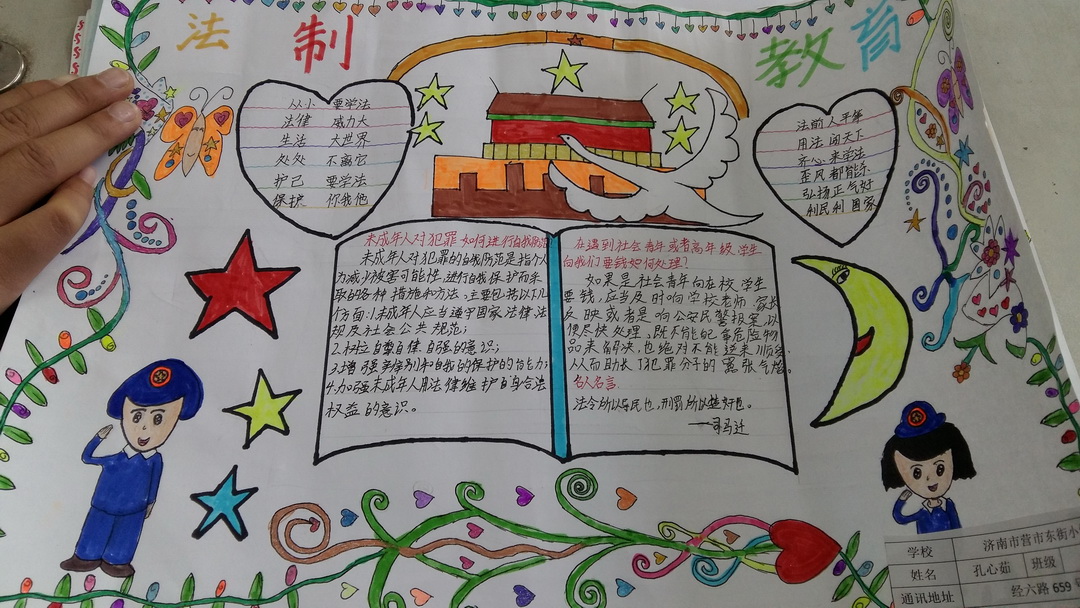 法制教育
从小 要学法
法律 威力大
生活 大世界
处处 不离它
护己 要学法
保护 你我他
法前人平等
用法闯天下
齐心来学法
歪风都能杀
弘扬正气好
利民利国家
未成年人对犯罪如何进行自我防范
未成年人对犯罪的自我防范是指个人
为减少被害可能性,进行自我保护而采
取的各种措施和方法。主要包括以下几
方面:1.未成年人应当遵守国家法律法
规及社会公共规范;
2.树立自尊自律自强的意识;
3.增强辨别和自我的保护的能力;
4.加强未成年人用法律维护自身合法
权益的意识。
在遇到社会青年或者高年级学生
向我们要钱如何处理?
如果是社会青年向在校学生
要钱,应当及时响学校老师、家长
反映或者是响公安民警报案,以
便尽快处理。既不能
品来解决,也绝对不能逆来顺受
从而助长了犯罪分子的嚣张气焰。
名人名言
法令所以导民也,刑罚所以禁奸也。
——司马迁
学校 济南市营市东街小
姓名 孔心茹 班级
通讯地址 经六路659